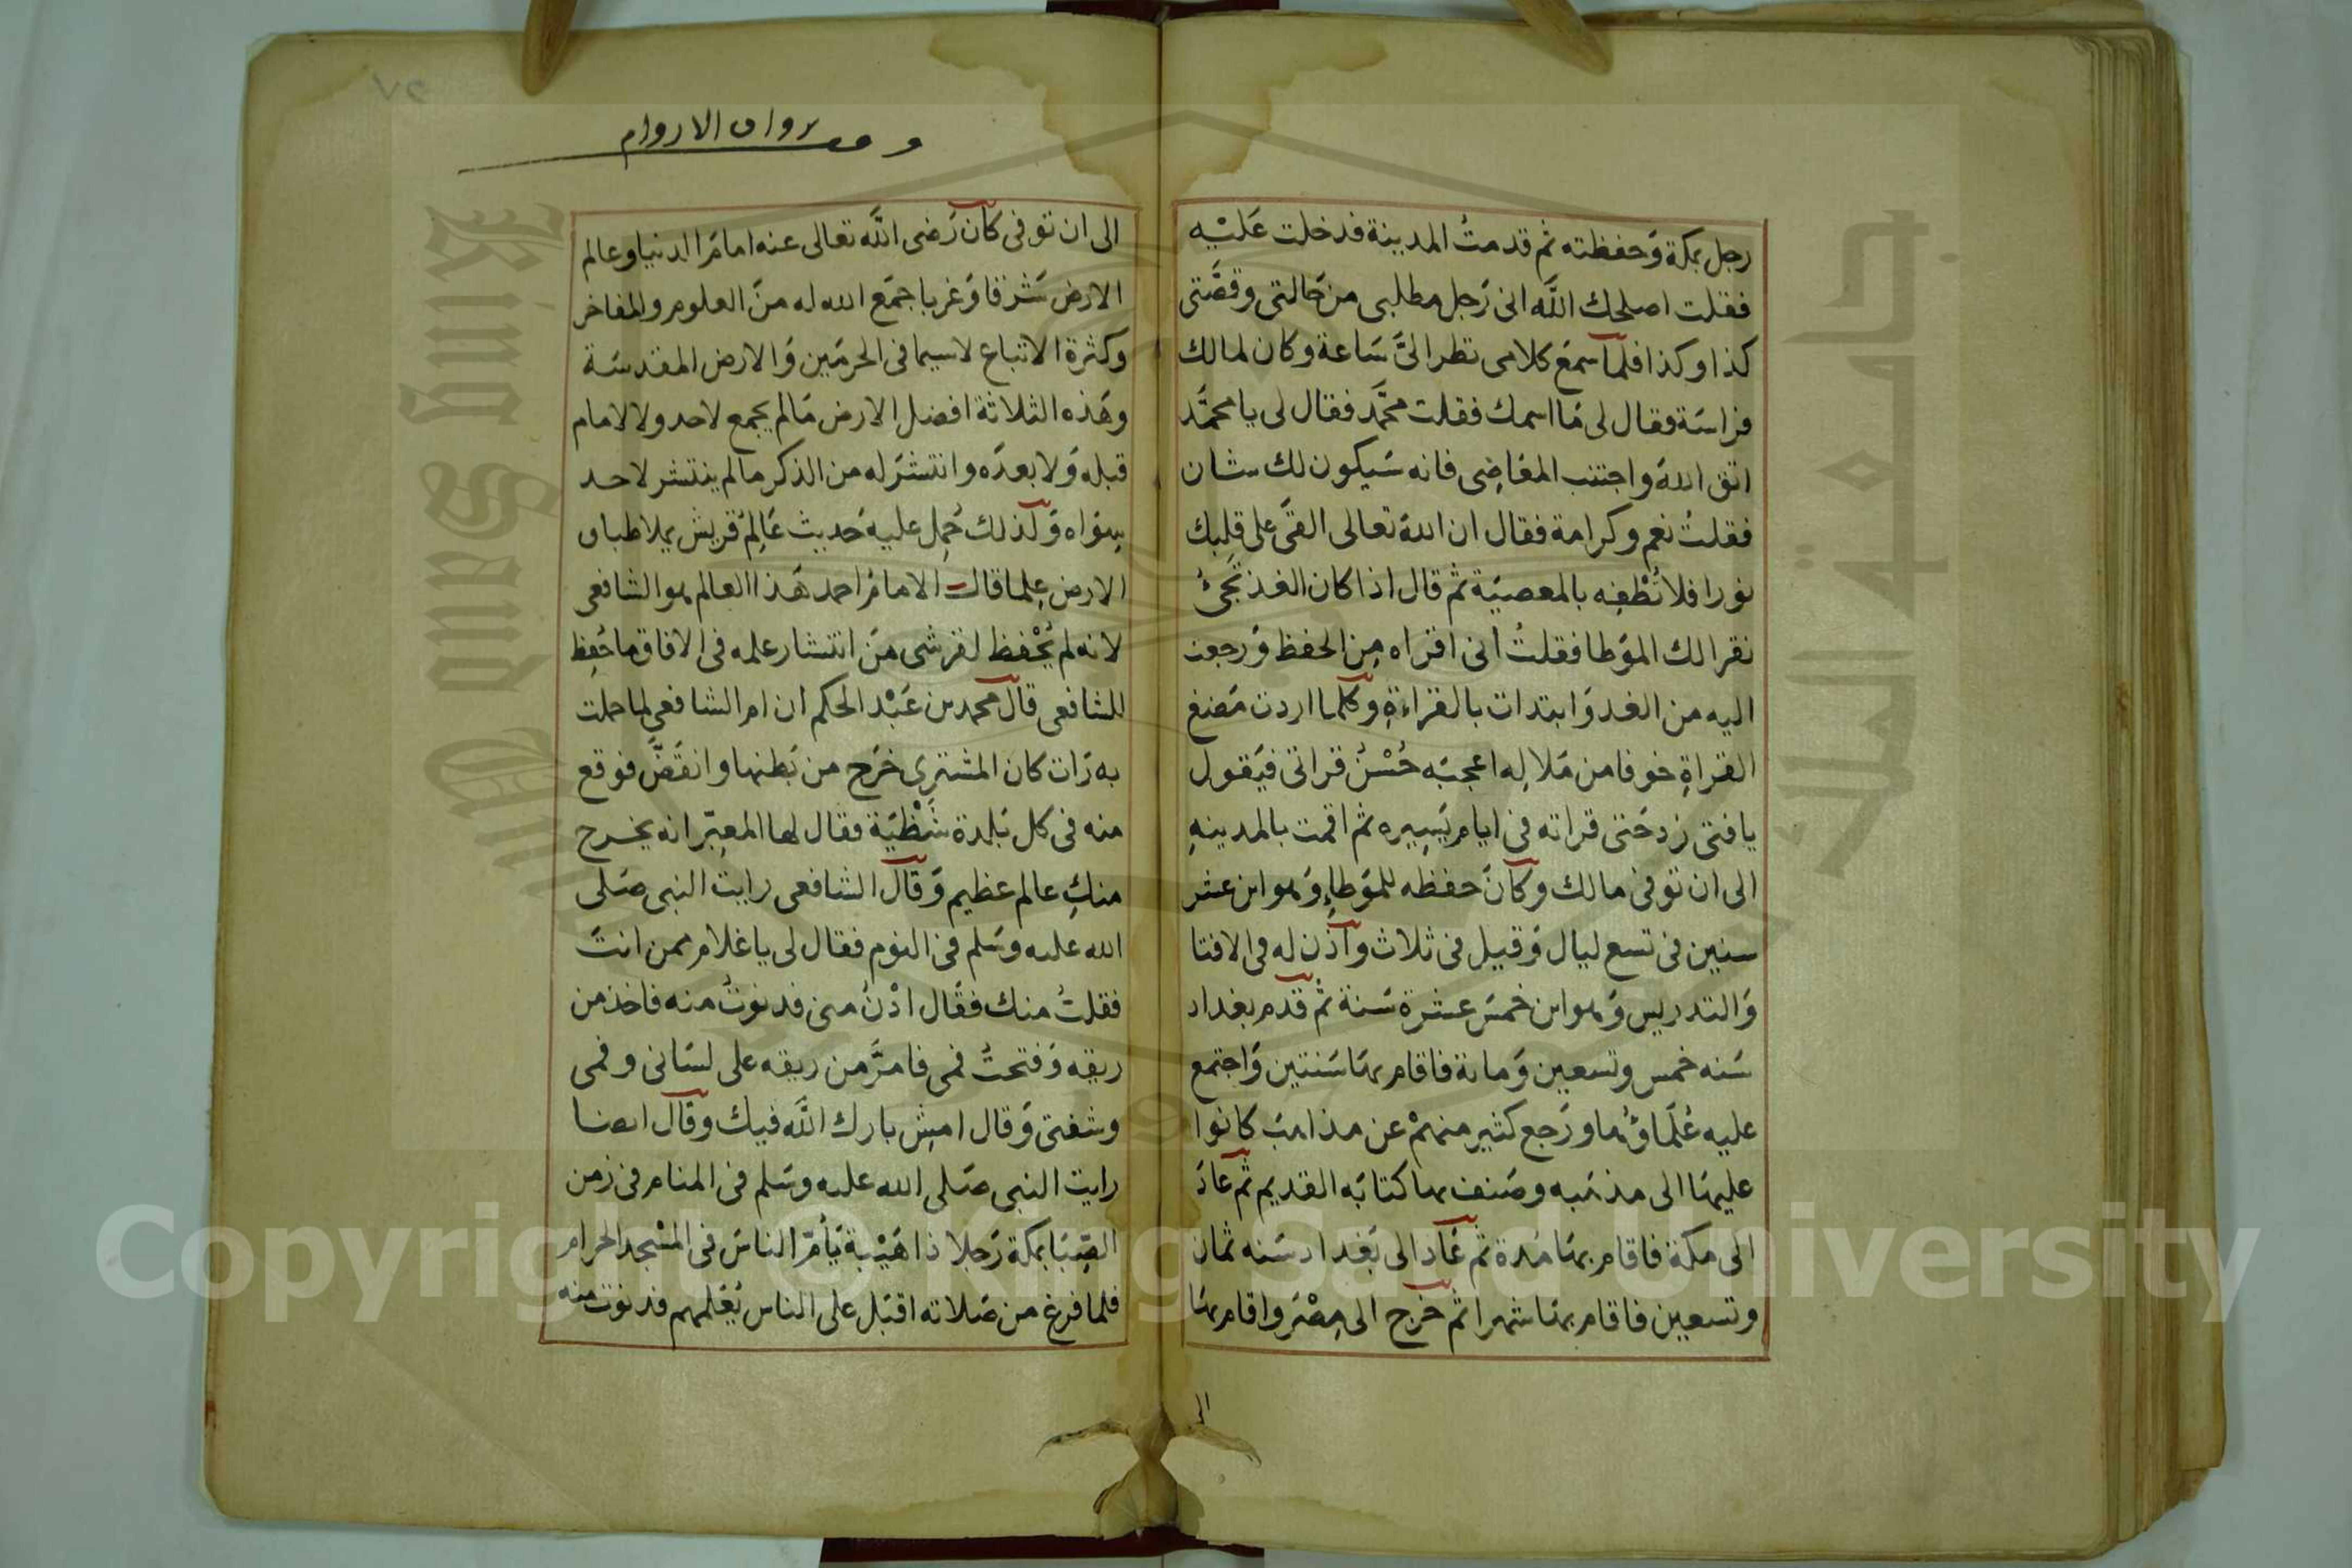 رجل بمكة وَحفظته ثم قدمتُ المدينة فدخلت عَليْه
فقلت اصلحك اللَّه انى رَجل مطلبى من حَالتى وقصَّتى
كذا وكذا فلما سمعَ كلامى نظر الىَّ سَاعة وكان لمالك
فراسَة فقال لى مَا اسمك فقلت محمَّد فقال لى يا محمَّد
اتق اللهَ واجتنب المعَاصِى فانه سَيكون لك شان
فقلتُ نعم وكرامة فقال ان اللهَ تعالى القَى على قلبك
نورا فلا تُطْفِه بالمعصيَة ثم قال اذا كان الغد تجَىُ
نقرا لك المؤطا فقلتُ أنى اقراه مِن الحفظ وَرجعت
اليه من الغد وَابتدات بالقراءةِ وكلما اردت
القراةِ خوفا من مَلالِه اعجبَه حُسْنُ قراتى فيَقول
يا فتى زد حَتى قراته فى ايام يَسِيره ثم اقمت بالمدينهِ
الى ان توفى مالك وكانَ حفظه للمؤطاءِ وَهو ابن عشر
سنين فى تسع ليال وَقيل فى ثلاث واذن له فى الافتا
وَالتدريس وَهو ابن خمسَ عشرة سَنة ثم قدم بغداد
سَنه خمس وتسعين وَماىة فاقام بهَا سَنتين وَاجتمع
عليه عُلمَاؤُها ورَجع كثير منهمْ عن مذاهبَ كانوا
عليهَا الى مذهَبه وصَنف بها كتابَه القديم ثم عادَ
الى مكة فاقام بهَا مُدة ثم عَاد الى بَغداد سَنه ثمان
وتسعين فاقام بهَا شهرا ثم خرج الى مِصْرَ واقام بهَا
الى
وقف رواق الاروام
٧٢
الى ان توفى كان رَضى اللَّه تعالى عنه امامَ الدنيا وعالم
الارض شرقا وَغربا جمَع الله له منَ العلوم والمفاخر
وكثرة الاتباع لاسيما فى الحرمَين وَالارض المقدسَة
وهَذه الثلاثة افضل الارض مَا لم يجمع لاحد ولا لامام
قبله وَلا بعدَه وانتشرَ له من الذكر ما لم ينتشر لاحد
سِوَاه وَلذلك حُمِل عليهَ حَديث عَالِمُ قريش يملا طباق
الارض عِلما قال الامامُ احمد هَذا العالم هو الشافعى
لانه لم يُحْفظ لقرشى مَن انتشار علمه فى الافاق ما حُفِظ
للشافعى قال محمد بن عَبْد الحكم ان ام الشافعى لما حملت
به رَات كان المشترى خرَج من بَطنها وانقَضَّ فوقع
منه فى كل بَلدة شَظْيَة فقال لها المعبِّر انه يخرج
منكِ عالم عظيم وَقال الشافعى رايتُ النبى صَلى
الله عليه وسَلم فى النوم فقال لى يا غلام ممن انتَ
فقلتُ منك فقَال ادْنُ منى فدنوتُ منه فاخذ من
ريقه وَفتحتُ فمى فامرَّ من ريقه على لسَانى وفمى
وشفتى وَقال امشِ بارك اللَّه فيك وقال ايضا
رايت النبى صَلى الله عليه وسَلم فى المنام فى زمن
الصِّبَا بمكة رَجلا ذا هَيْبة يَأمّ الناسَ فى المسْجد الحرام
فلما فرغ من صَلاته اقبَل على الناس يُعَلمهم فدنوت منه